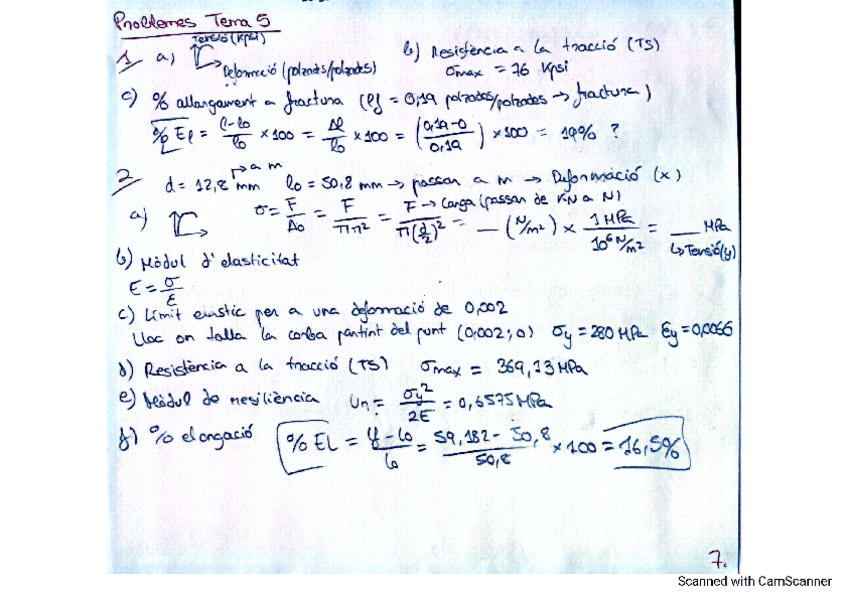 Problemes Tema 5
1 a) Tensió (Kpsi)
Deformació (polzades/polzades)
b) Resistència a la tracció (TS)
σmax = 76 Kpsi
c) % allargament a fractura (lf = 0,19 polzades/polzades → fractura)
% El = (l-l0)/l0 ×100 = Δl/l0 ×100 = ((0,19-0)/0,19) ×100 = 19% ?
2 d = 12,8 mm → a m l0 = 50,8 mm → passar a m → Deformació (x)
a) σ = F/A0 = F/πr² = F/π(d/2)² = __ (N/m²) × 1 MPa/10⁶ N/m² = __ MPa
F → Carga (passar de KN a N)
↳ Tensió (y)
b) Mòdul d'elasticitat
E = σ/ε
c) Límit elàstic per a una deformació de 0,002
Lloc on talla la corba partint del punt (0,002; 0) σy = 280 MPa Ey = 0,0066
d) Resistència a la tracció (TS) σmax = 369,13 MPa
e) Mòdul de resiliència Ur = σy²/2E = 0,6575 MPa
f) % elongació % EL = (lf - l0)/l0 = (59,182 - 50,8)/50,8 × 100 = 16,5%
7.
Scanned with CamScanner